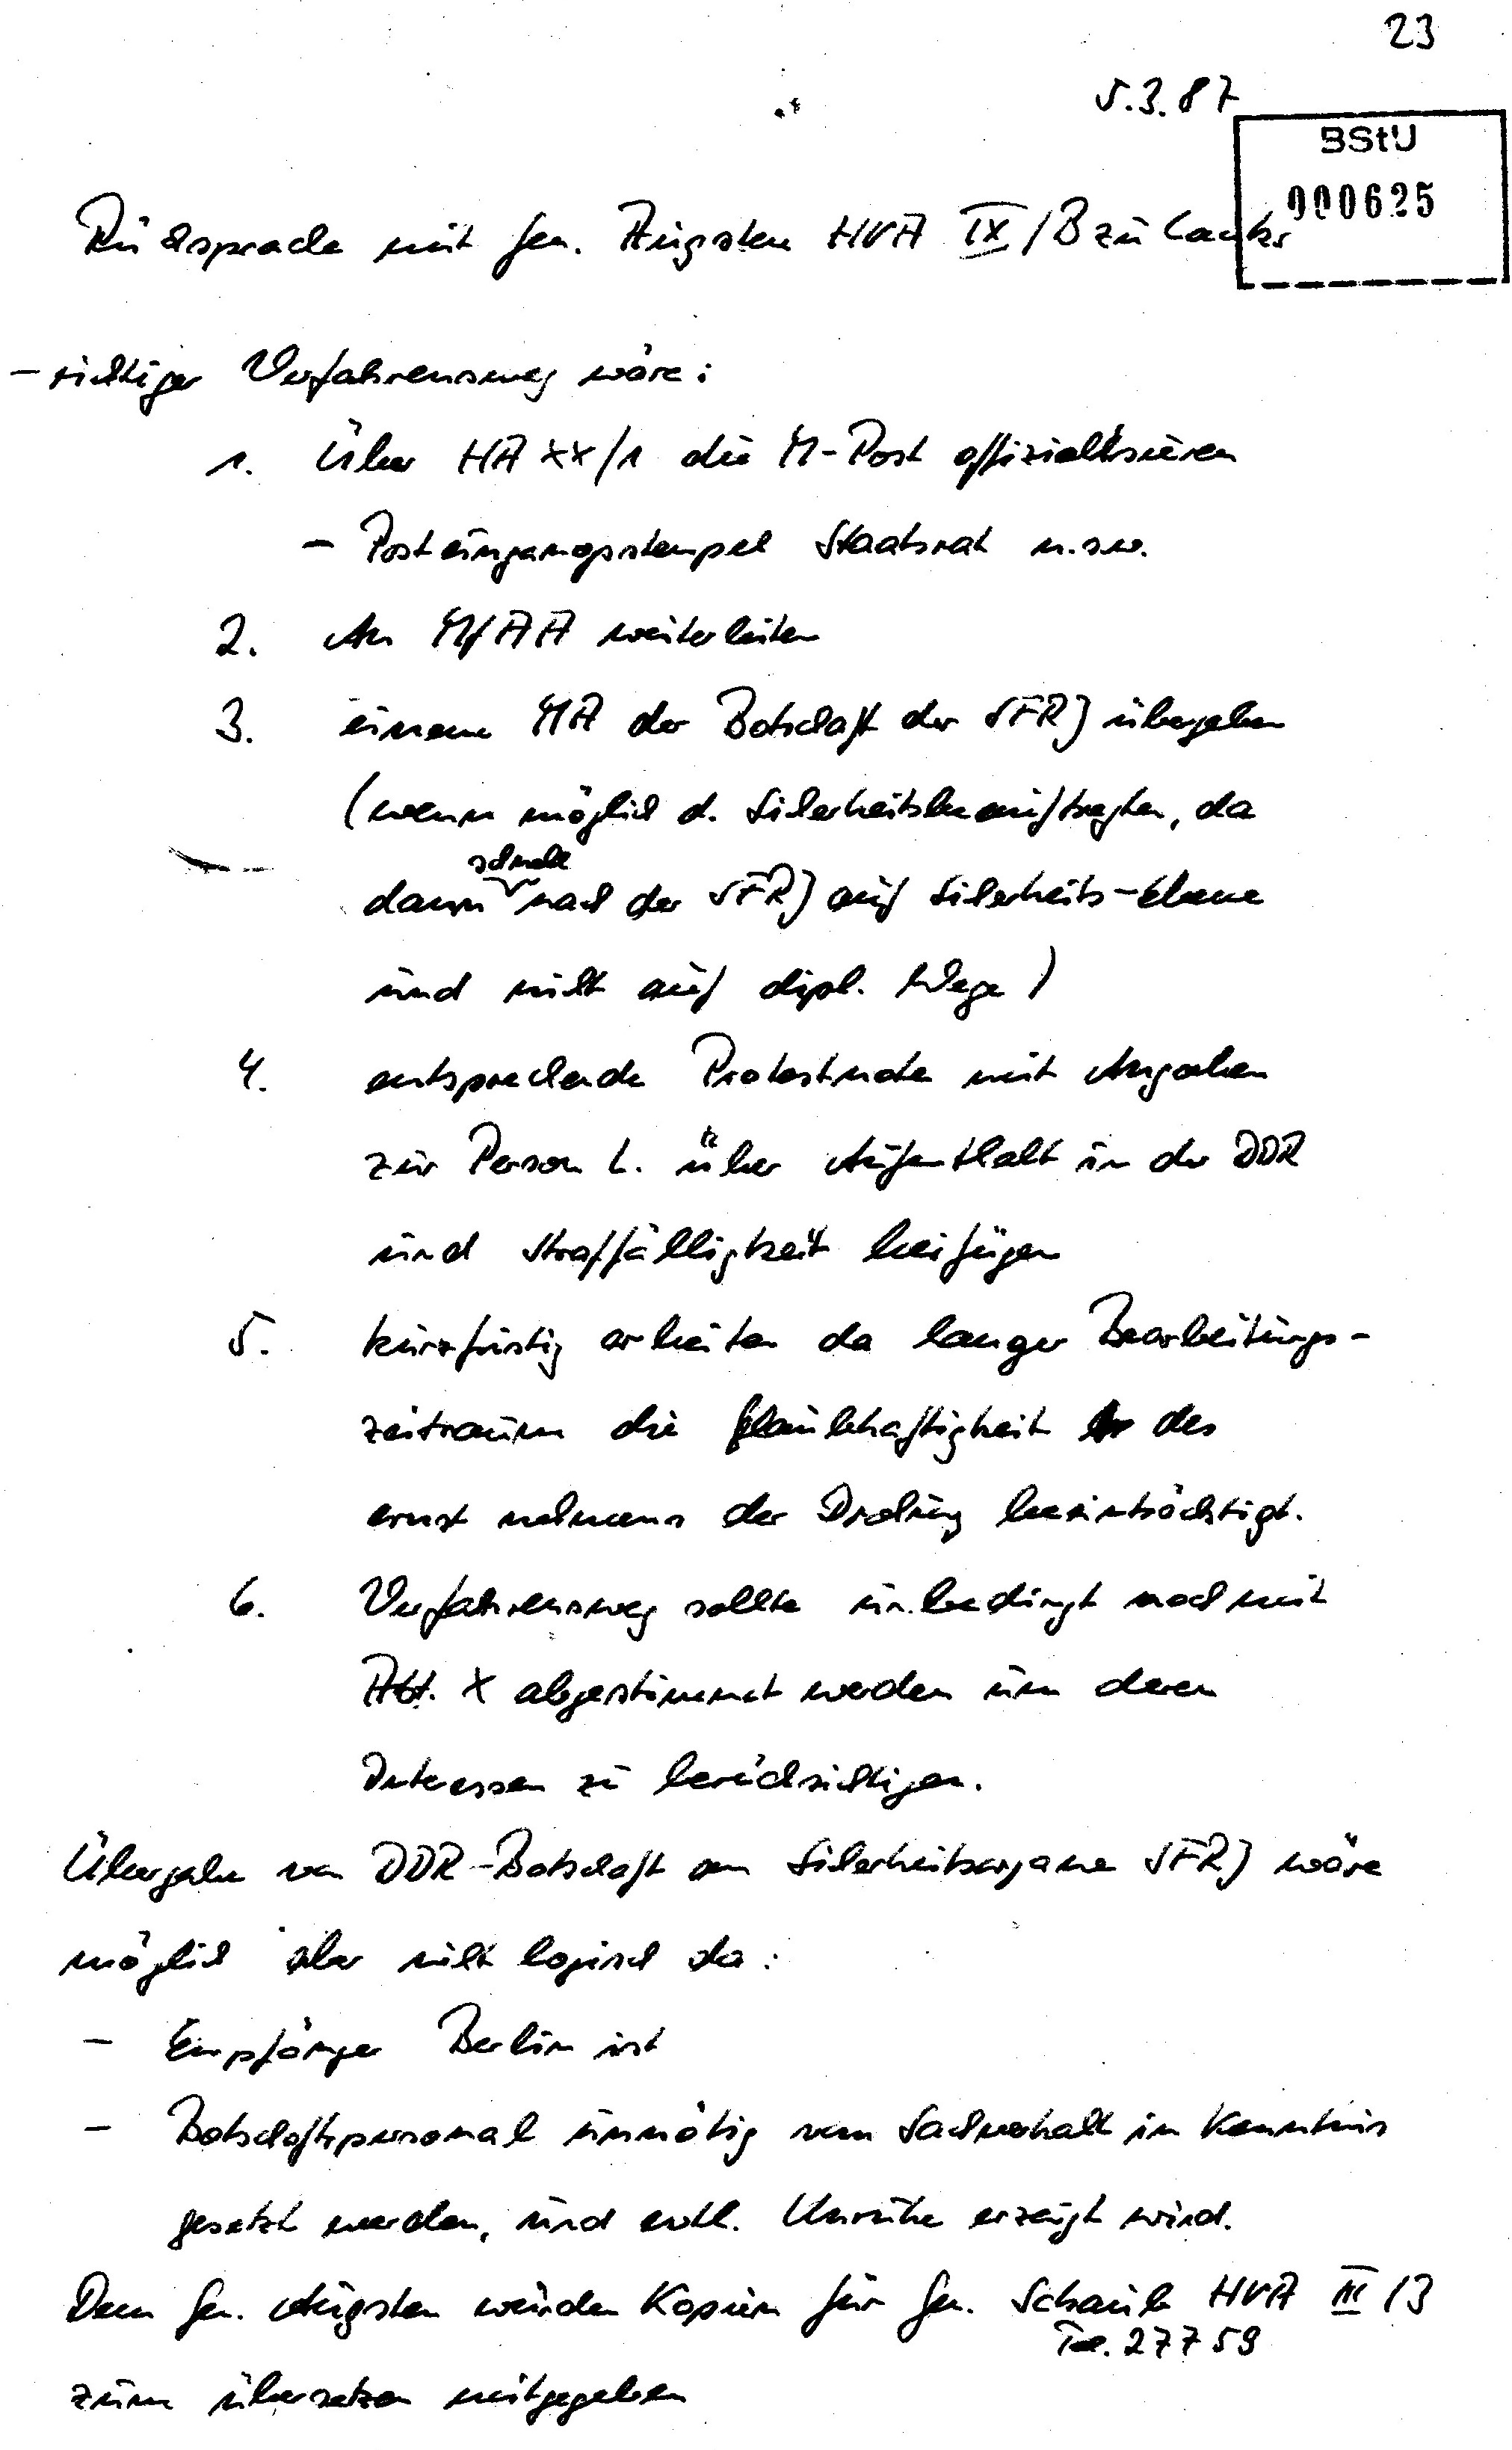 23
5.3.87
BStU
000625
Rücksprache mit Gen. Augsten HVA IX/B zu Lauks
- richtiger Verfahrensweg wäre:
1. Über HA XX/1 die M-Post offizialisieren
- Posteingangsstempel Staatsrat u.s.w.
2. An MfAA weiterleiten
3. einem MA der Botschaft der SFRJ übergeben
(wenn möglich d. Sicherheitsbeauftragten, da
schnell
dann nach der SFRJ auf Sicherheits-Ebene
und nicht auf dipl. Wege)
4. entsprechende Protestnote mit Angaben
zur Person L. über Aufenthalt in der DDR
und Straffälligkeit beifügen
5. kurzfristig arbeiten da langer Bearbeitungs-
zeitraum die Glaubhaftigkeit des
ernst nehmens der Drohung beeinträchtigt.
6. Verfahrensweg sollte unbedingt noch mit
Abt. X abgestimmt werden um deren
Interessen zu berücksichtigen.
Übergabe von DDR-Botschaft an Sicherheitsorgane SFRJ wäre
möglich aber nicht logisch da:
- Empfänger Berlin ist
- Botschaftspersonal unnötig vom Sachverhalt in Kenntnis
gesetzt werden, und evtl. Unruhe erzeugt wird.
Dem Gen. Augsten wurden Kopien für Gen. Schaub HVA III/3
Tel. 27759
zum übersetzen mitgegeben